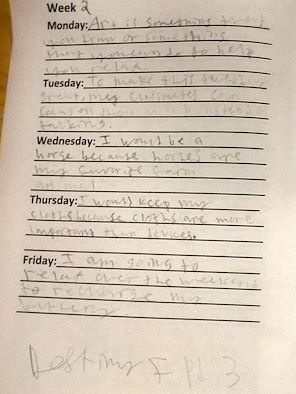 Week 2
Monday: Art is something that
you draw or something
that you can do to help
you relax
Tuesday: To make this tuesday
great, my classmates can
on their work instead
talking.
Wednesday: I would be a
horse because horses are
my favorite farm
animal
Thursday: I would keep my
cloths because cloths are more
important than devices.
Friday: I am going to
relax over the weekend
to recharge my
battery
Destiny F pd 3